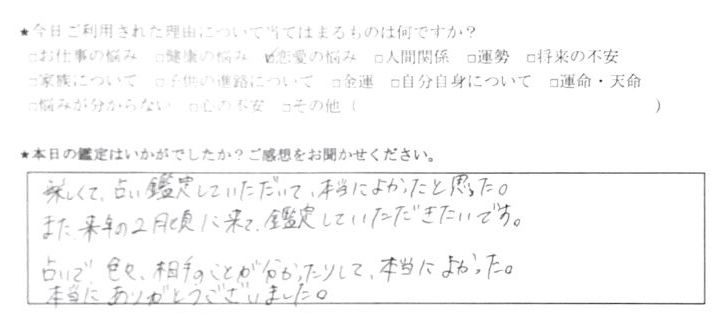 ★今日ご利用された理由について当てはまるものは何ですか？
□お仕事の悩み □健康の悩み ☑恋愛の悩み □人間関係 □運勢 □将来の不安
□家族について □子供の進路について □金運 □自分自身について □運命・天命
□悩みが分からない □心の不安 □その他（ ）
★本日の鑑定はいかがでしたか？ご感想をお聞かせください。
楽しくて、占い鑑定していただいて、本当によかったと思った。
また、来年の2月頃に来て、鑑定していただきたいです。
占いで、色々、相手のことが分かったりして、本当によかった。
本当にありがとうございました。